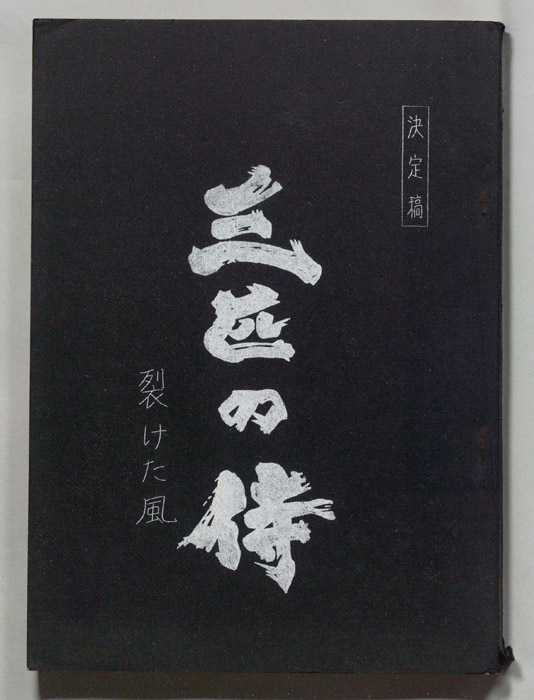 決定稿
三匹の侍
裂けた風